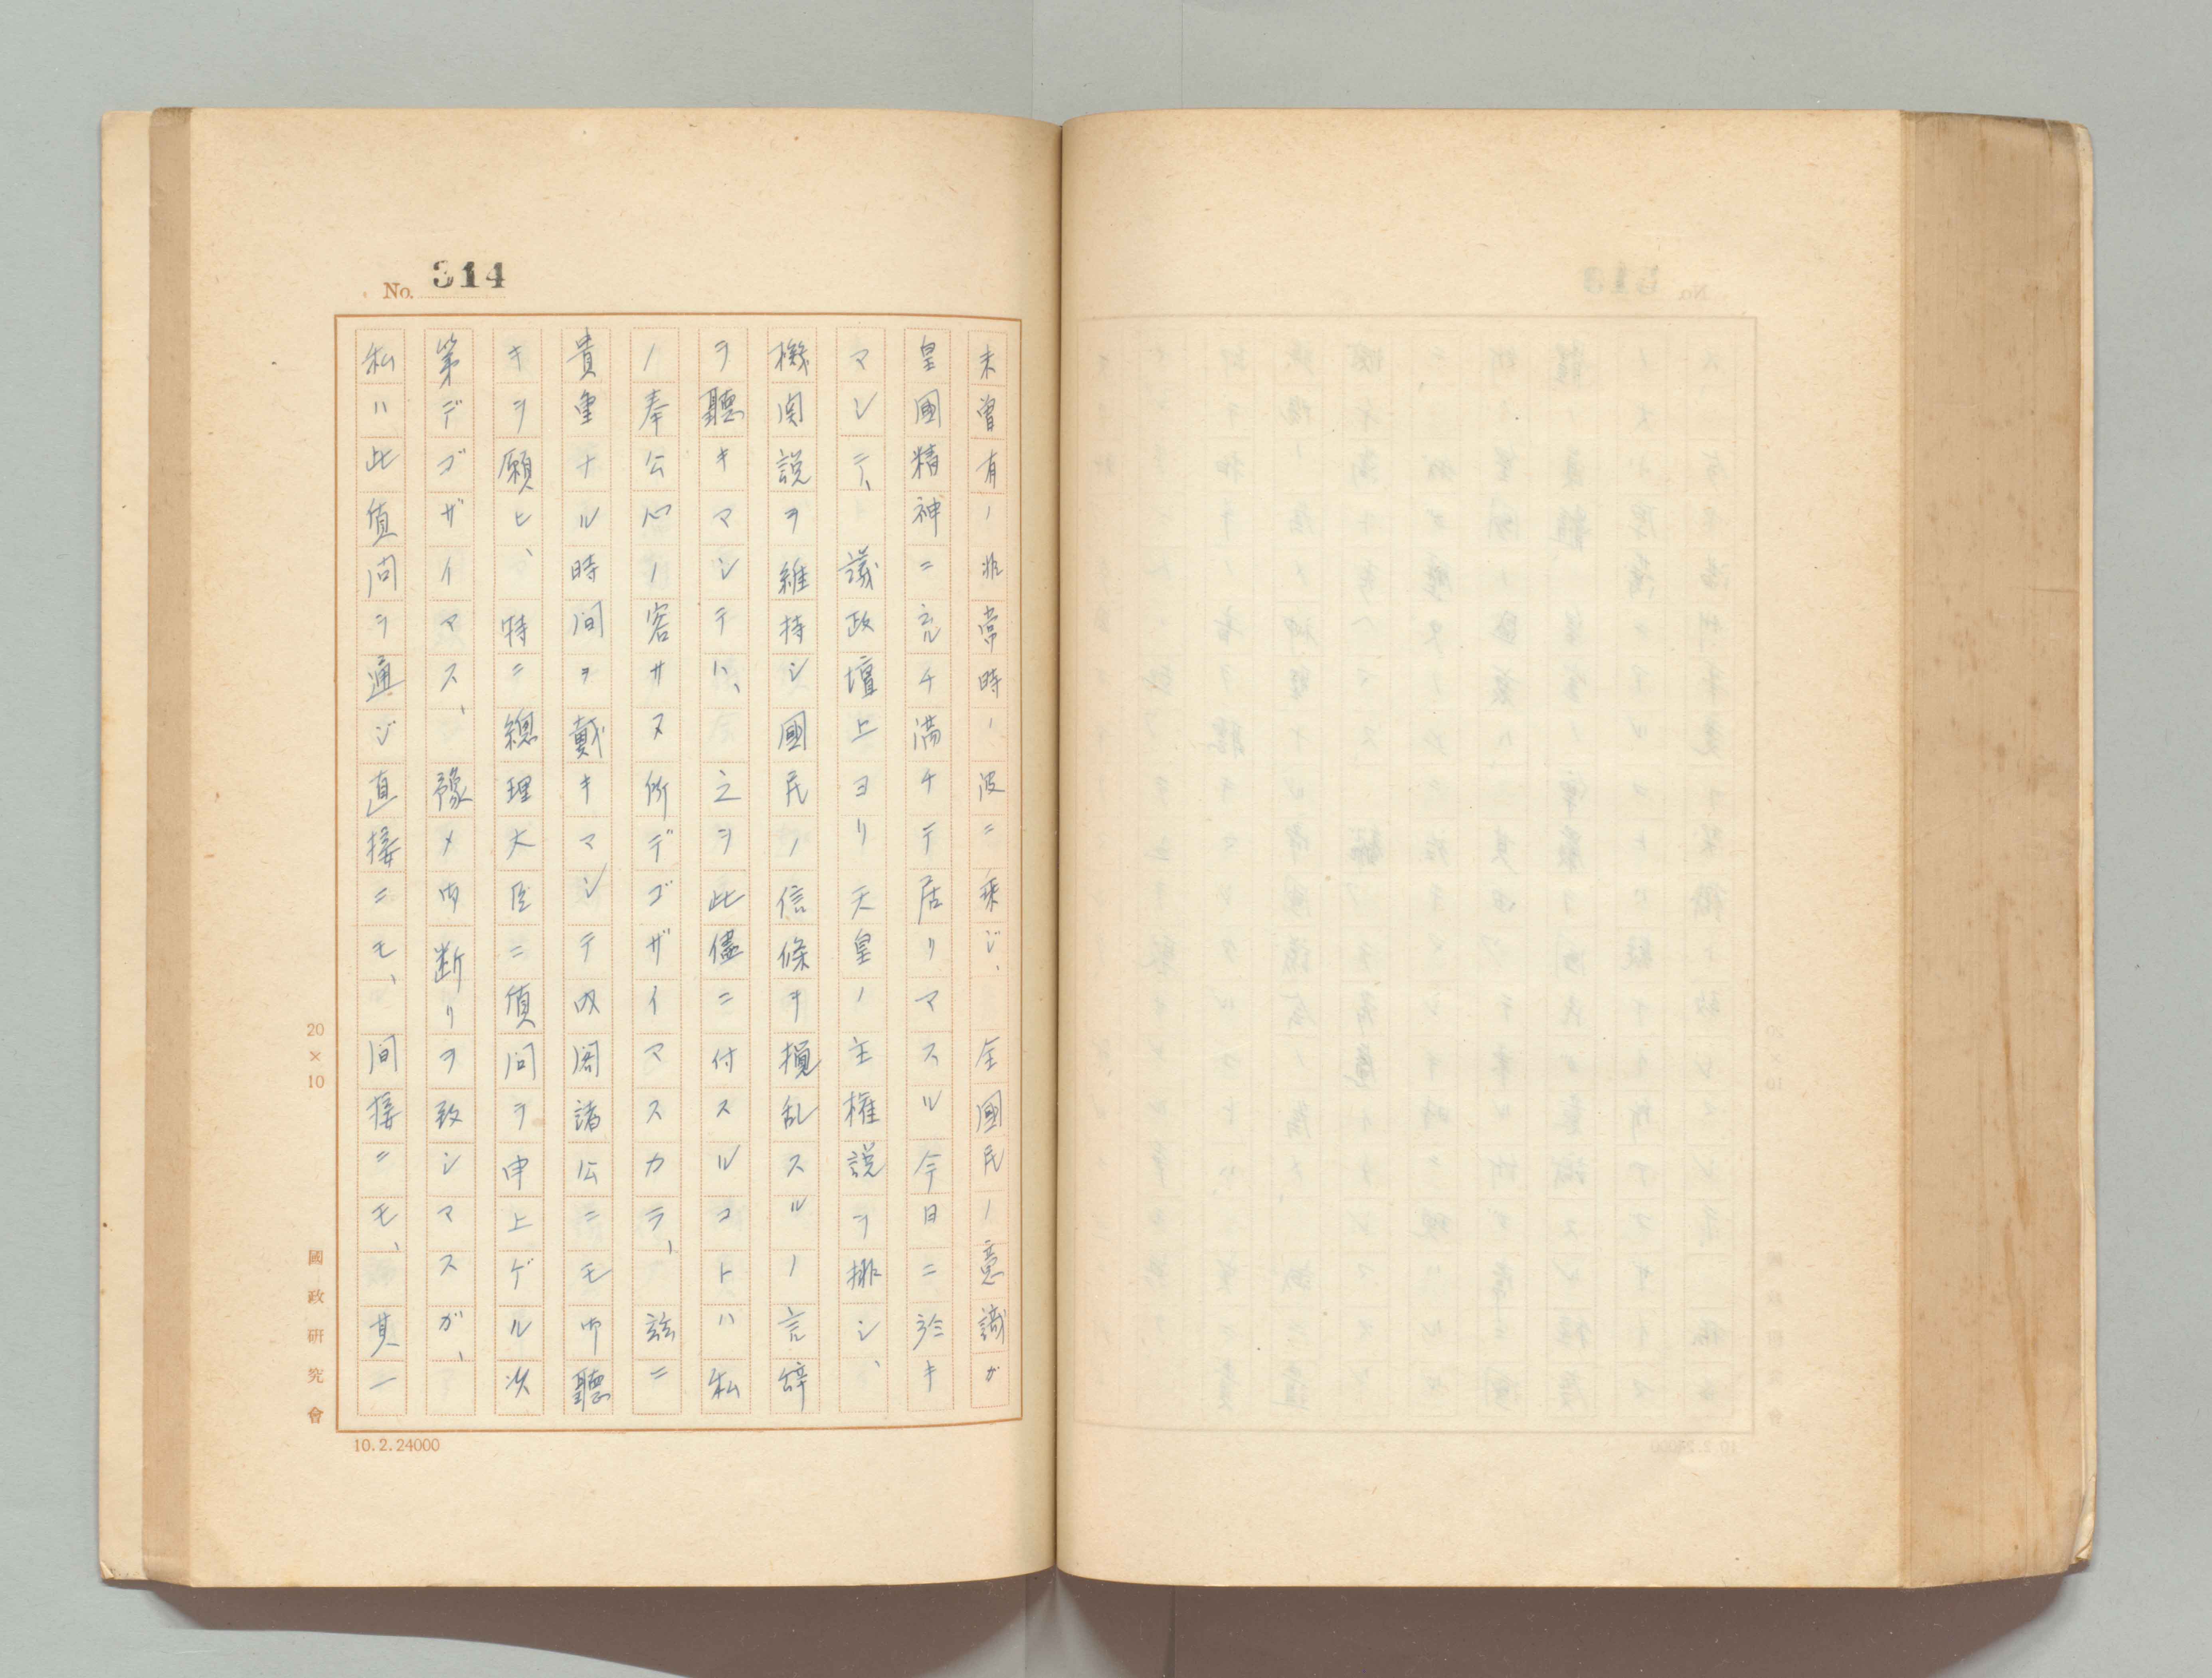 No. 314
未曾有ノ非常時ノ波ニ乗ジ、全國民ノ意識ガ
皇國精神ニ充チ満チテ居リマスル今日ニ於キ
マシテ、議政壇上ヨリ天皇ノ主權説ヲ排シ、
機関説ヲ維持シ國民ノ信條ヲ攪乱スルノ言辞
ヲ聽キマシテハ、之ヲ此儘ニ付スルコトハ私
ノ奉公心ノ容サヌ所デゴザイマスカラ、茲ニ
貴重ナル時間ヲ戴キマシテ内閣諸公ニモ御聽
キヲ願ヒ、特ニ總理大臣ニ質問ヲ申上ゲル次
第デゴザイマス、豫メ御断リヲ致シマスガ、
私ハ此質問ヲ通ジ直接ニモ、間接ニモ、其一
20×10
國政研究會
10.2.24000